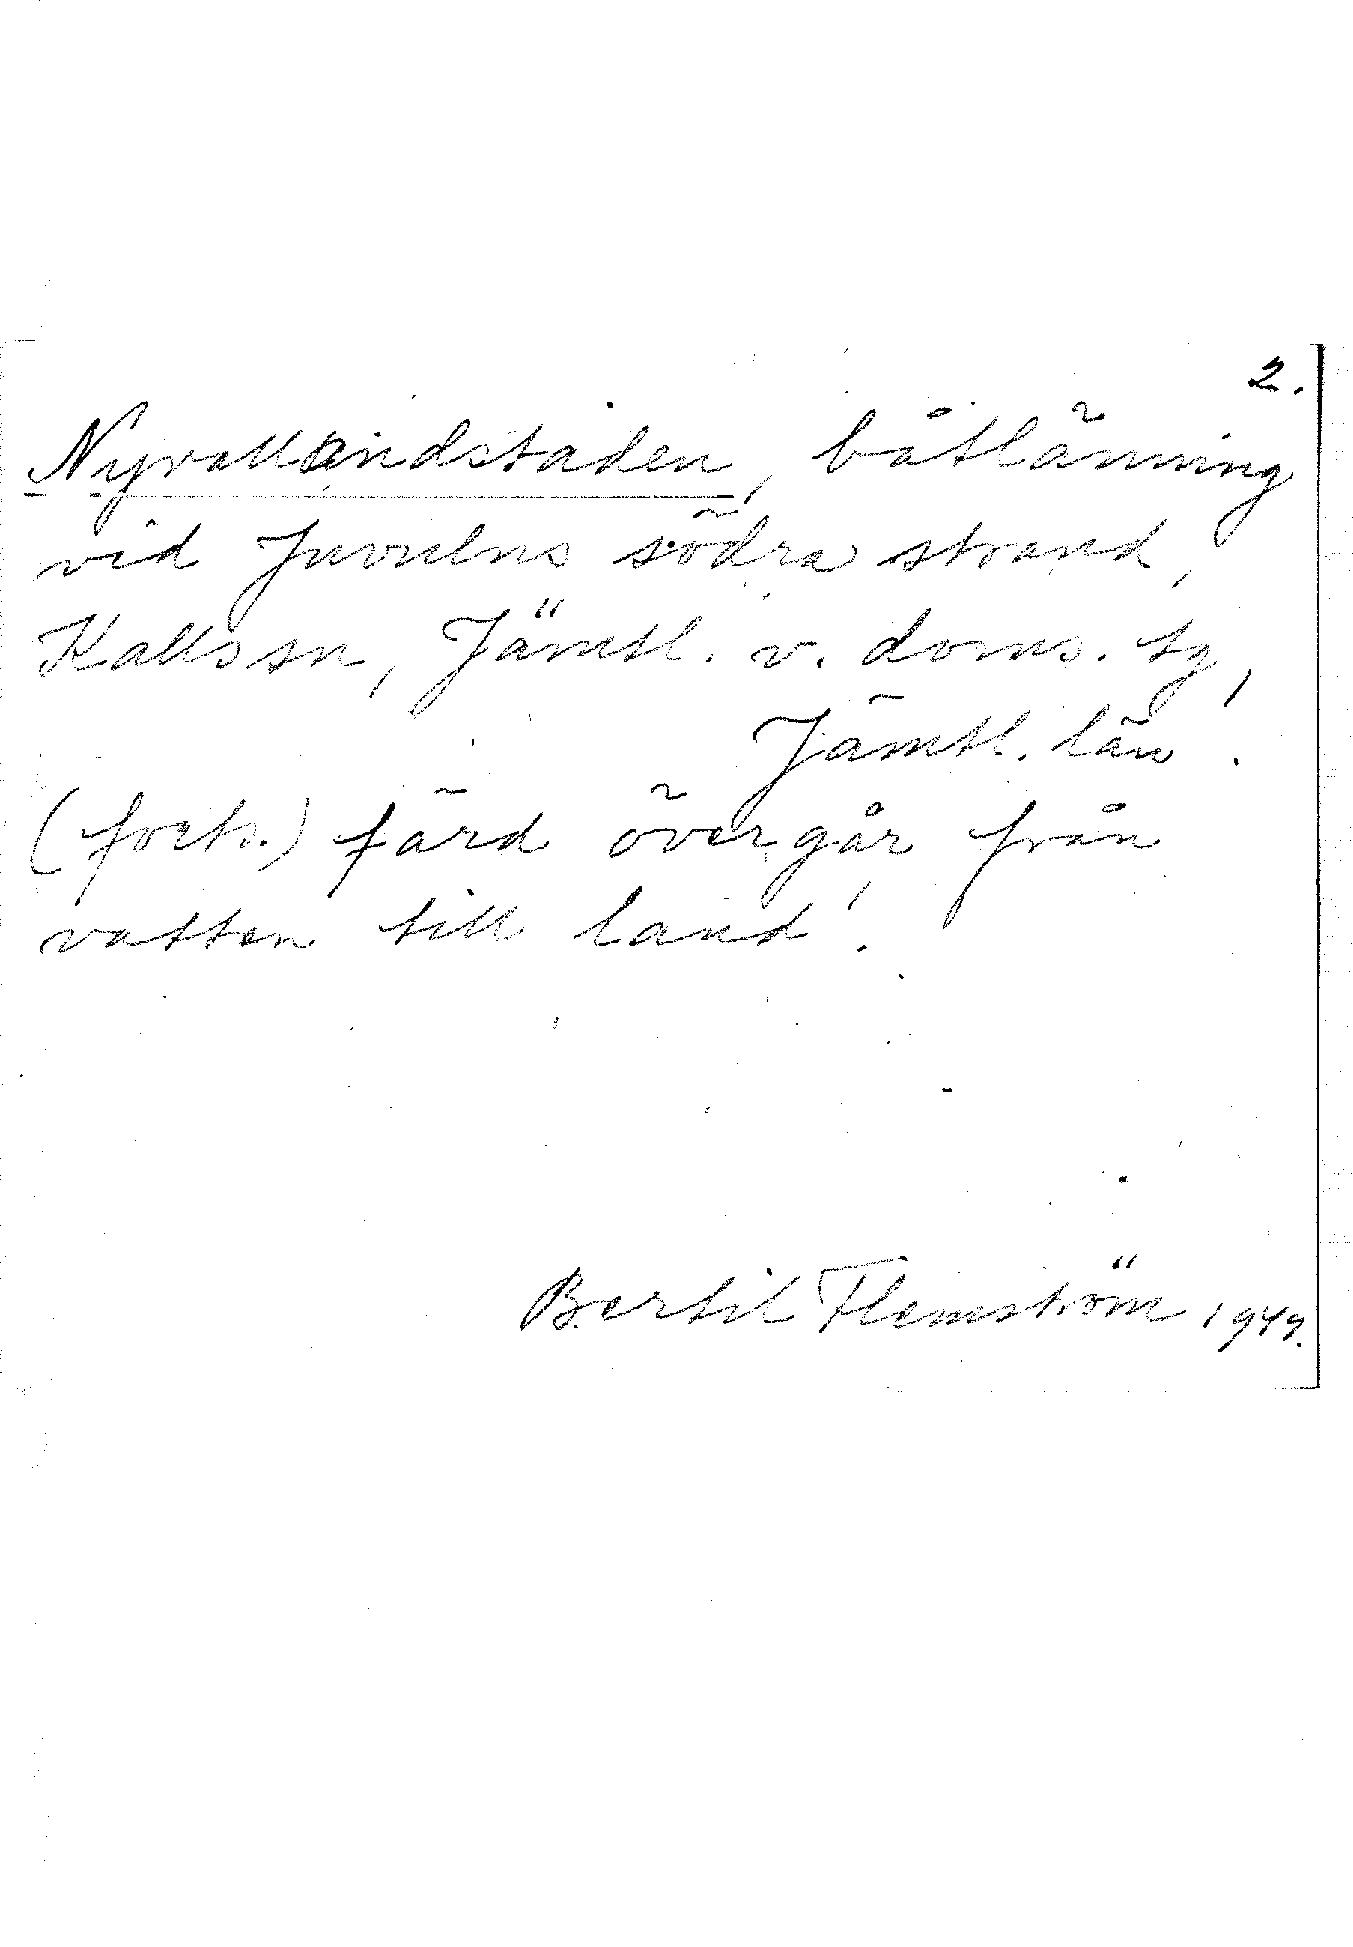 2.
Nyvallandstaden, båtlänning
vid Juvulns södra strand,
Kalls sn, Jämtl. v. doms. tg,
Jämtl. län.
(forts.) färd övergår från
vatten till land!
Bertil Flemström 1949.